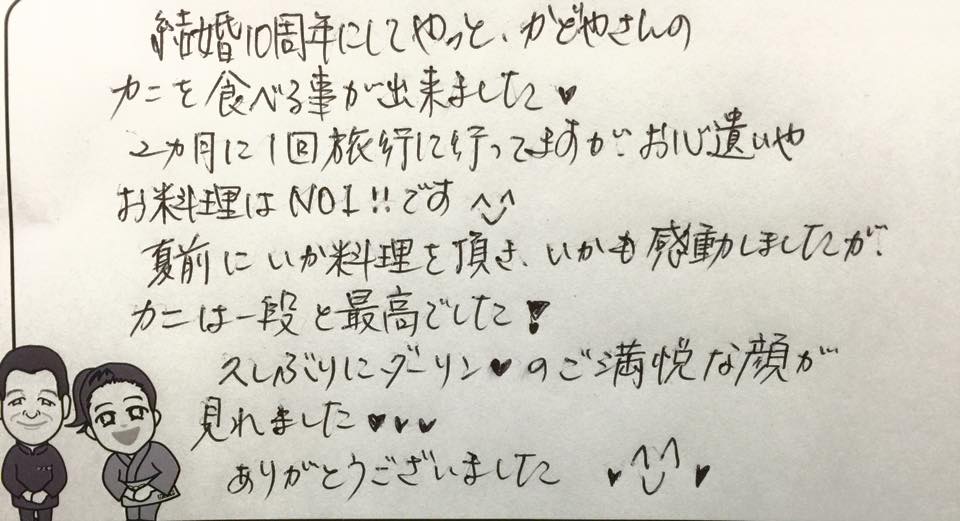 結婚10周年にしてやっと、かどやさんの
カニを食べる事が出来ました♥
2カ月に1回旅行に行ってますが、お心遣いや
お料理はNO1!!です
夏前にいか料理を頂き、いかも感動しましたが、
カニは一段と最高でした!
久しぶりにダーリン♥のご満悦な顔が
見れました♥♥♥
ありがとうございました